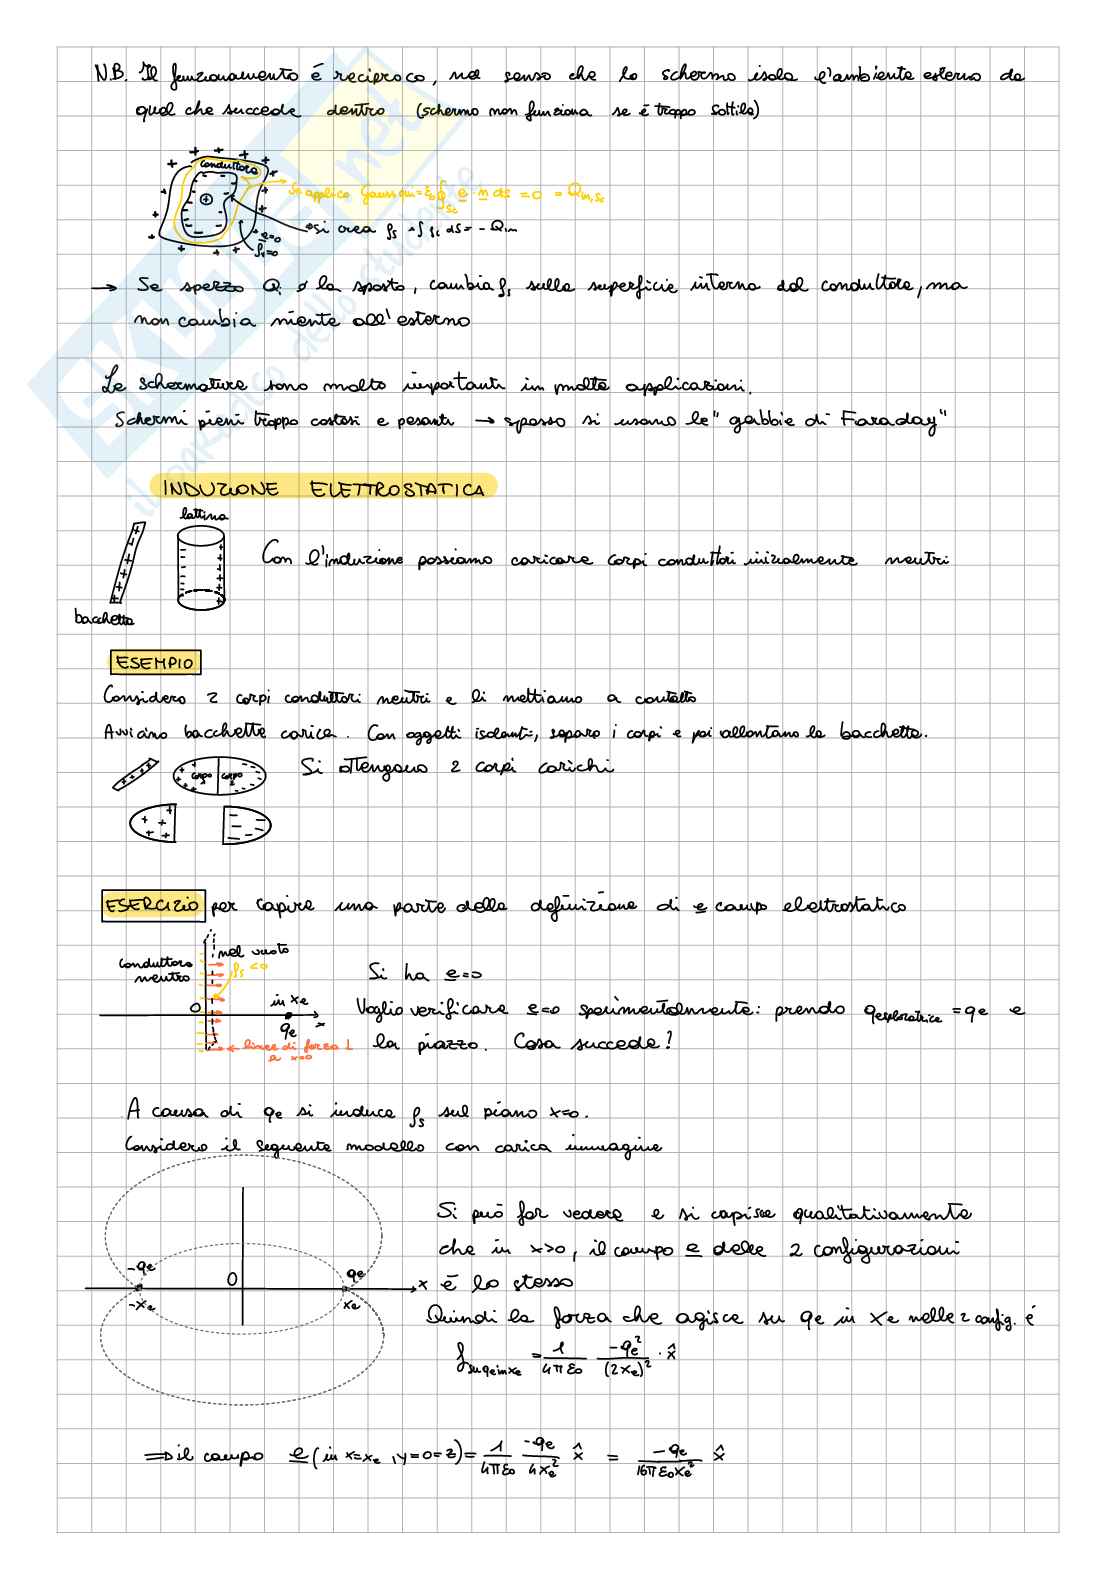 N.B. Il funzionamento é reciproco, nel senso che lo schermo isola l'ambiente esterno da
quel che succede dentro (schermo non funziona se é troppo sottile)
conduttore
Se applico Gauss qui = ε₀ ∮Sc e · n ds = 0 = Qin,Sc
si crea ρs → ∫ ρs ds = - Qin
e=0
ρs=0
→ Se spezzo Q o la sposto, cambia ρs sulla superficie interna del conduttore, ma
non cambia niente all'esterno
Le schermature sono molto importanti in molte applicazioni.
Schermi pieni troppo costosi e pesanti → spesso si usano le "gabbie di Faraday"
INDUZIONE ELETTROSTATICA
lattina
Con l'induzione possiamo caricare corpi conduttori inizialmente neutri
bacchetta
ESEMPIO
Considero 2 corpi conduttori neutri e li mettiamo a contatto
Avvicino bacchetta carica. Con oggetti isolanti, separo i corpi e poi allontano la bacchetta.
corpo 1 corpo 2
Si ottengono 2 corpi carichi
ESERCIZIO per capire una parte della definizione di e campo elettrostatico
conduttore neutro
nel vuoto
ρs<0
Si ha e=0
0
in xe
qe
x
Voglio verificare e=0 sperimentalmente: prendo qesploratrice = qe e
la piazzo. Cosa succede?
← linee di forza ⊥
a x=0
A causa di qe si induce ρs sul piano x=0.
Considero il seguente modello con carica immagine
Si può far vedere e si capisce qualitativamente
che in x>0, il campo e delle 2 configurazioni
é lo stesso
-qe
0
qe
x
-xe
xe
Quindi la forza che agisce su qe in xe nelle 2 config. é
f su qe in xe = 1/(4πε₀) · -qe²/(2xe)² · x̂
⇒ il campo e (in x=xe, y=0=z) = 1/(4πε₀) · -qe/(4xe²) x̂ = -qe/(16πε₀xe²) x̂